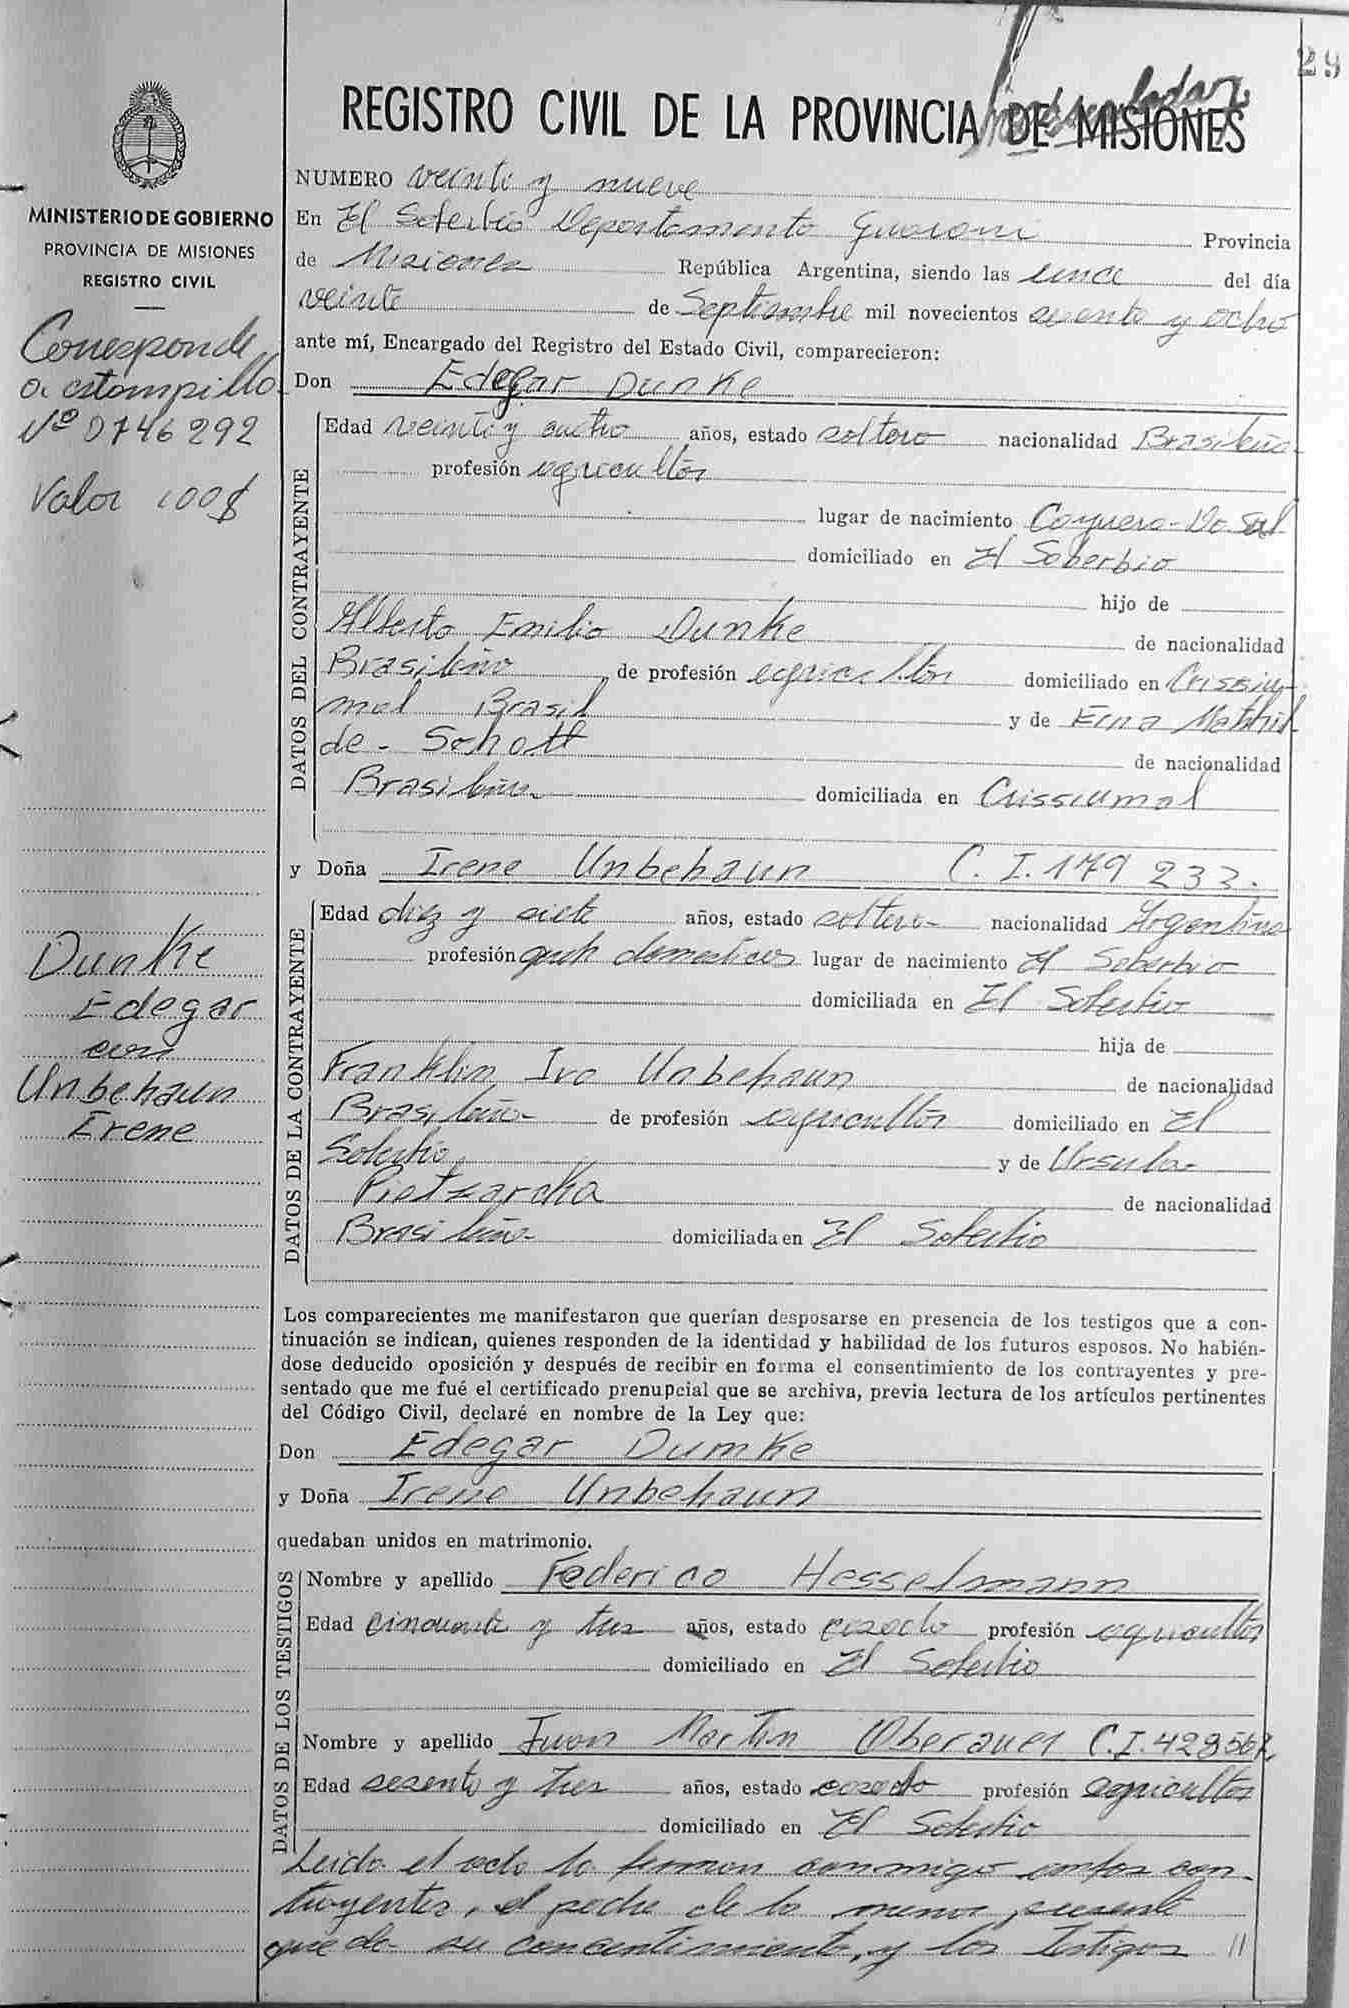 29
REGISTRO CIVIL DE LA PROVINCIA DE MISIONES
MINISTERIO DE GOBIERNO
PROVINCIA DE MISIONES
REGISTRO CIVIL
Corresponde
a estampilla
Nº 0746292
Valor 100$
Dunke
Edegar
con
Unbehaun
Irene
NUMERO veinte y nueve
En El Soberbio Departamento Guarani Provincia
de Misiones República Argentina, siendo las once del día
veinte de Septiembre mil novecientos sesenta y ocho
ante mí, Encargado del Registro del Estado Civil, comparecieron:
Don Edegar Dunke
DATOS DEL CONTRAYENTE
Edad veinte y cuatro años, estado soltero nacionalidad Brasileña
profesión agricultor
lugar de nacimiento Coquero-Do Sul
domiciliado en El Soberbio
hijo de
Alberto Emilio Dunke de nacionalidad
Brasileño de profesión agricultor domiciliado en Crissiu-
mal Brasil y de Erna Mathil
de - Schott de nacionalidad
Brasileña domiciliada en Crissiumal
y Doña Irene Unbehaun C. I. 179 233.
DATOS DE LA CONTRAYENTE
Edad diez y siete años, estado soltera nacionalidad Argentina
profesión queh domesticos lugar de nacimiento El Soberbio
domiciliada en El Soberbio
hija de
Franklin Ivo Unbehaun de nacionalidad
Brasileño de profesión agricultor domiciliado en El
Soberbio y de Ursula
Pietzarcka de nacionalidad
Brasileña domiciliada en El Soberbio
Los comparecientes me manifestaron que querían desposarse en presencia de los testigos que a con-
tinuación se indican, quienes responden de la identidad y habilidad de los futuros esposos. No habién-
dose deducido oposición y después de recibir en forma el consentimiento de los contrayentes y pre-
sentado que me fué el certificado prenupcial que se archiva, previa lectura de los artículos pertinentes
del Código Civil, declaré en nombre de la Ley que:
Don Edegar Dumke
y Doña Irene Unbehaun
quedaban unidos en matrimonio.
DATOS DE LOS TESTIGOS
Nombre y apellido Federico Hesselmann
Edad cincuenta y tres años, estado casado profesión agricultor
domiciliado en El Soberbio
Nombre y apellido Juan Martin Oberauer C.I. 428567
Edad sesenta y tres años, estado casado profesión agricultor
domiciliado en El Soberbio
Leida el acta la firman conmigo ambos con
trayentes, el padre de la menor presente
que da su concentimiento, y los testigos //